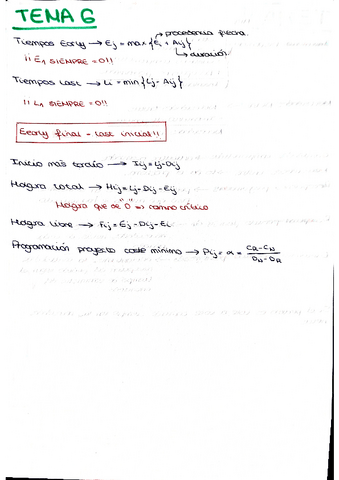 TEMA 6
procedencia flecha
Tiempos Early → Ej = max {Ei + Aij}
duración
¡¡ E1 SIEMPRE = 0!!
Tiempos Last → Li = min {Lj - Aij}
¡¡ L1 SIEMPRE = 0!!
Eearly final = last inicial!!
Inicio más tardío → Iij = Lj - Dij
Holgura total → Hij = Lj - Dij - Eij
Holgura que de "0" ⇒ camino crítico
Holgura libre → Fij = Ej - Dij - Ei
Programación proyecto coste mínimo → Pij = α = CA - CN / DN - DA